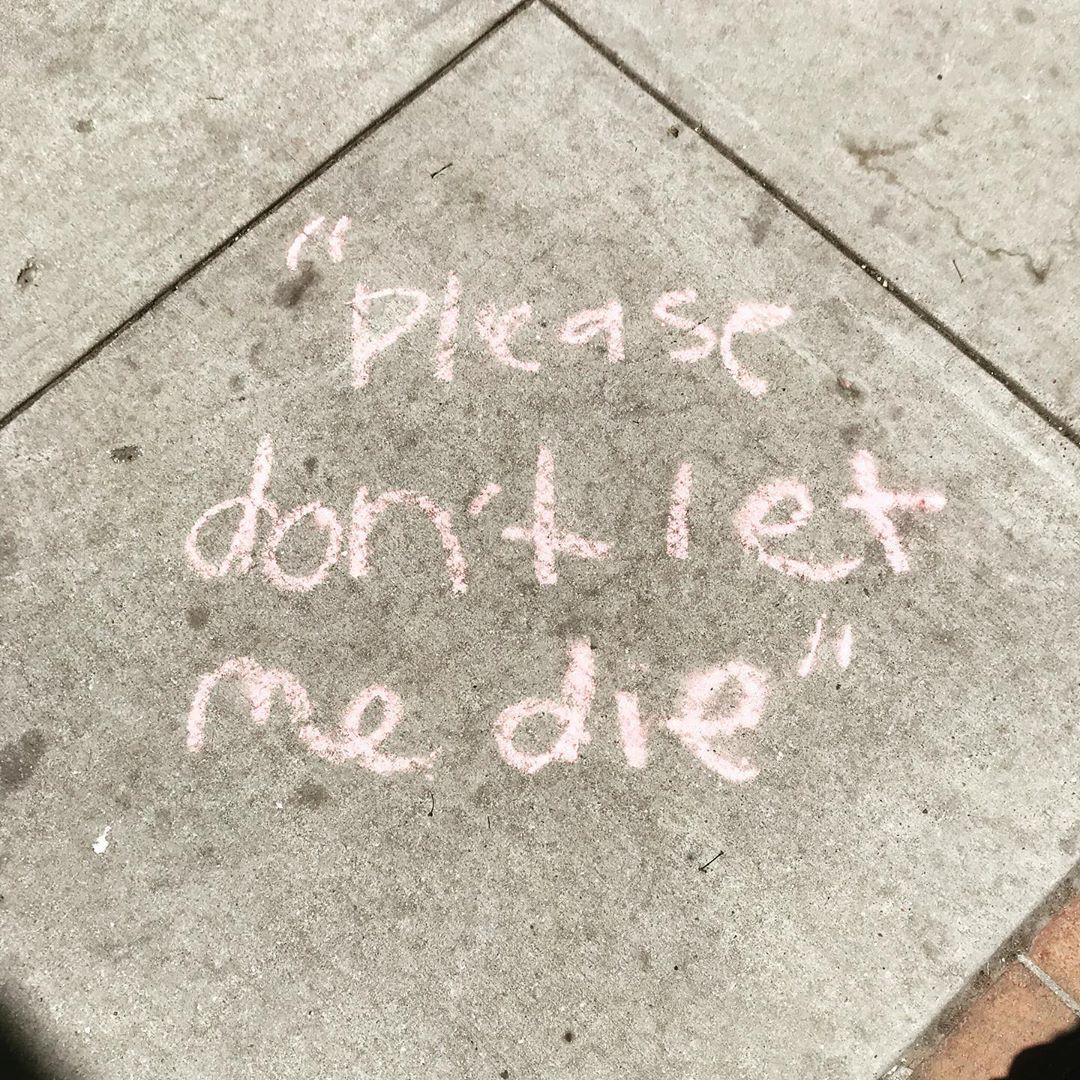 "please
don't let
me die"